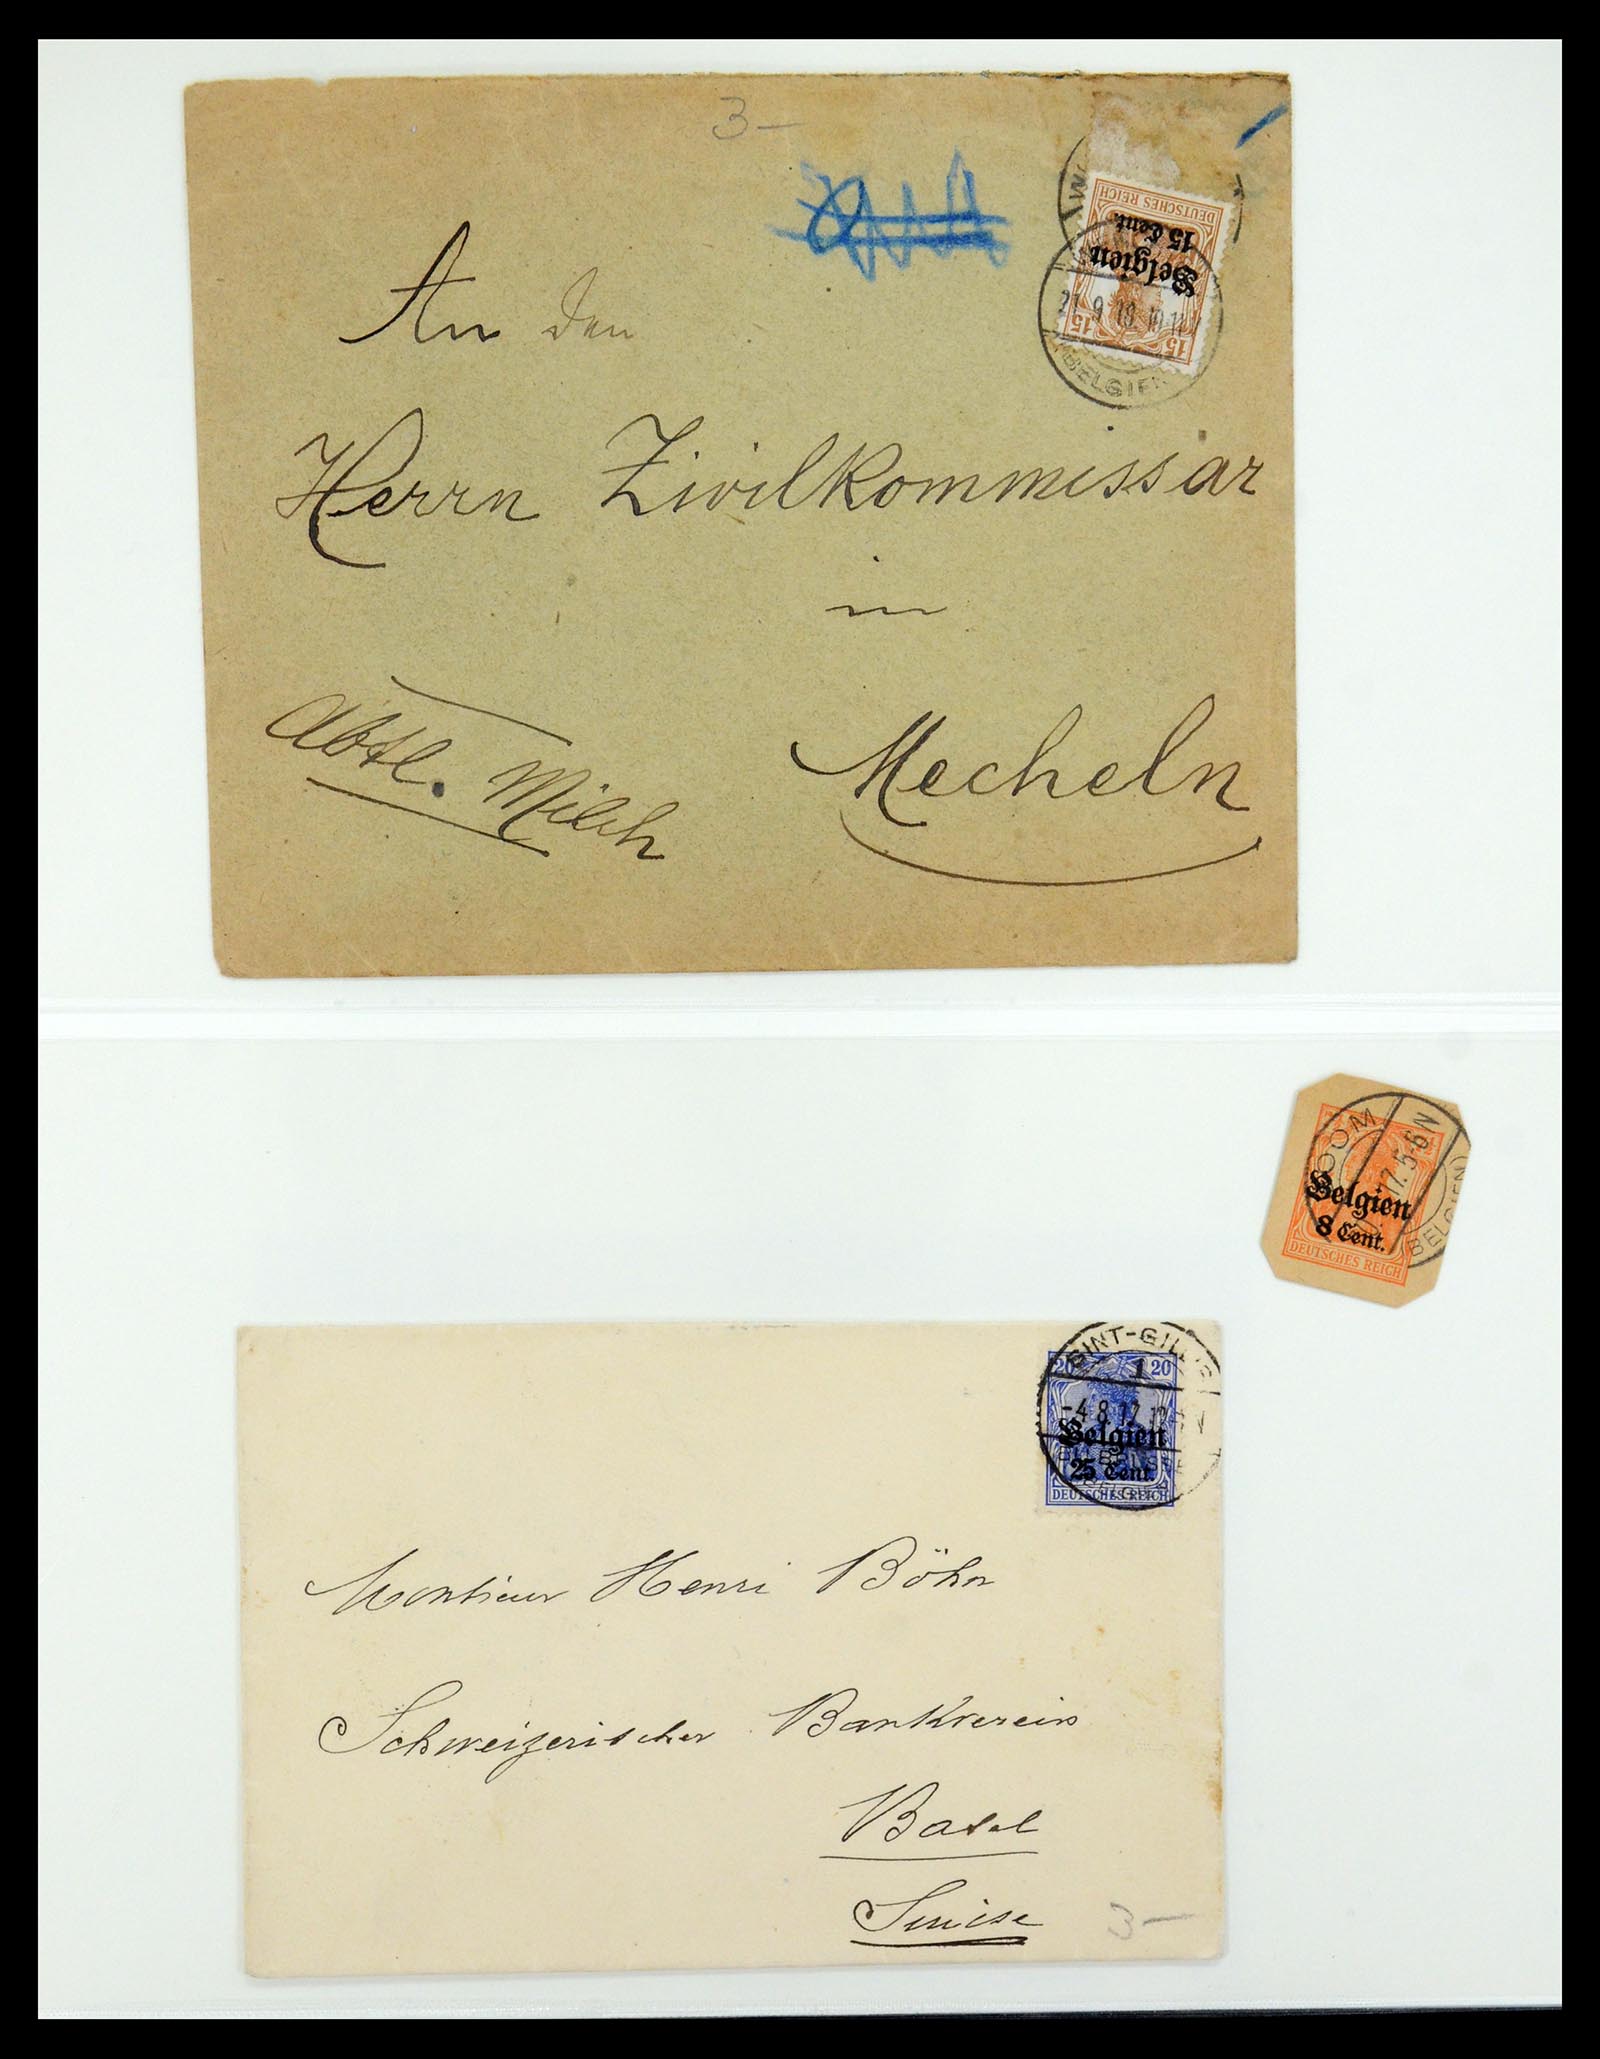 3-
DEUTSCHES REICH
15 Cent.
Belgien
15 15
27.9.18.10-11
BELGIEN
An den
Herrn Zivilkommissar
in
Mecheln
Abtl. Milch
17.5-6N
Belgien
8 Cent.
DEUTSCHES REICH
(BELGIEN)
20 20
1
-4.8.17.12
Belgien
25 Cent.
DEUTSCHES REICH
Monsieur Henri Böhn
Schweizerischer Bankverein
Basel
Suisse
3-